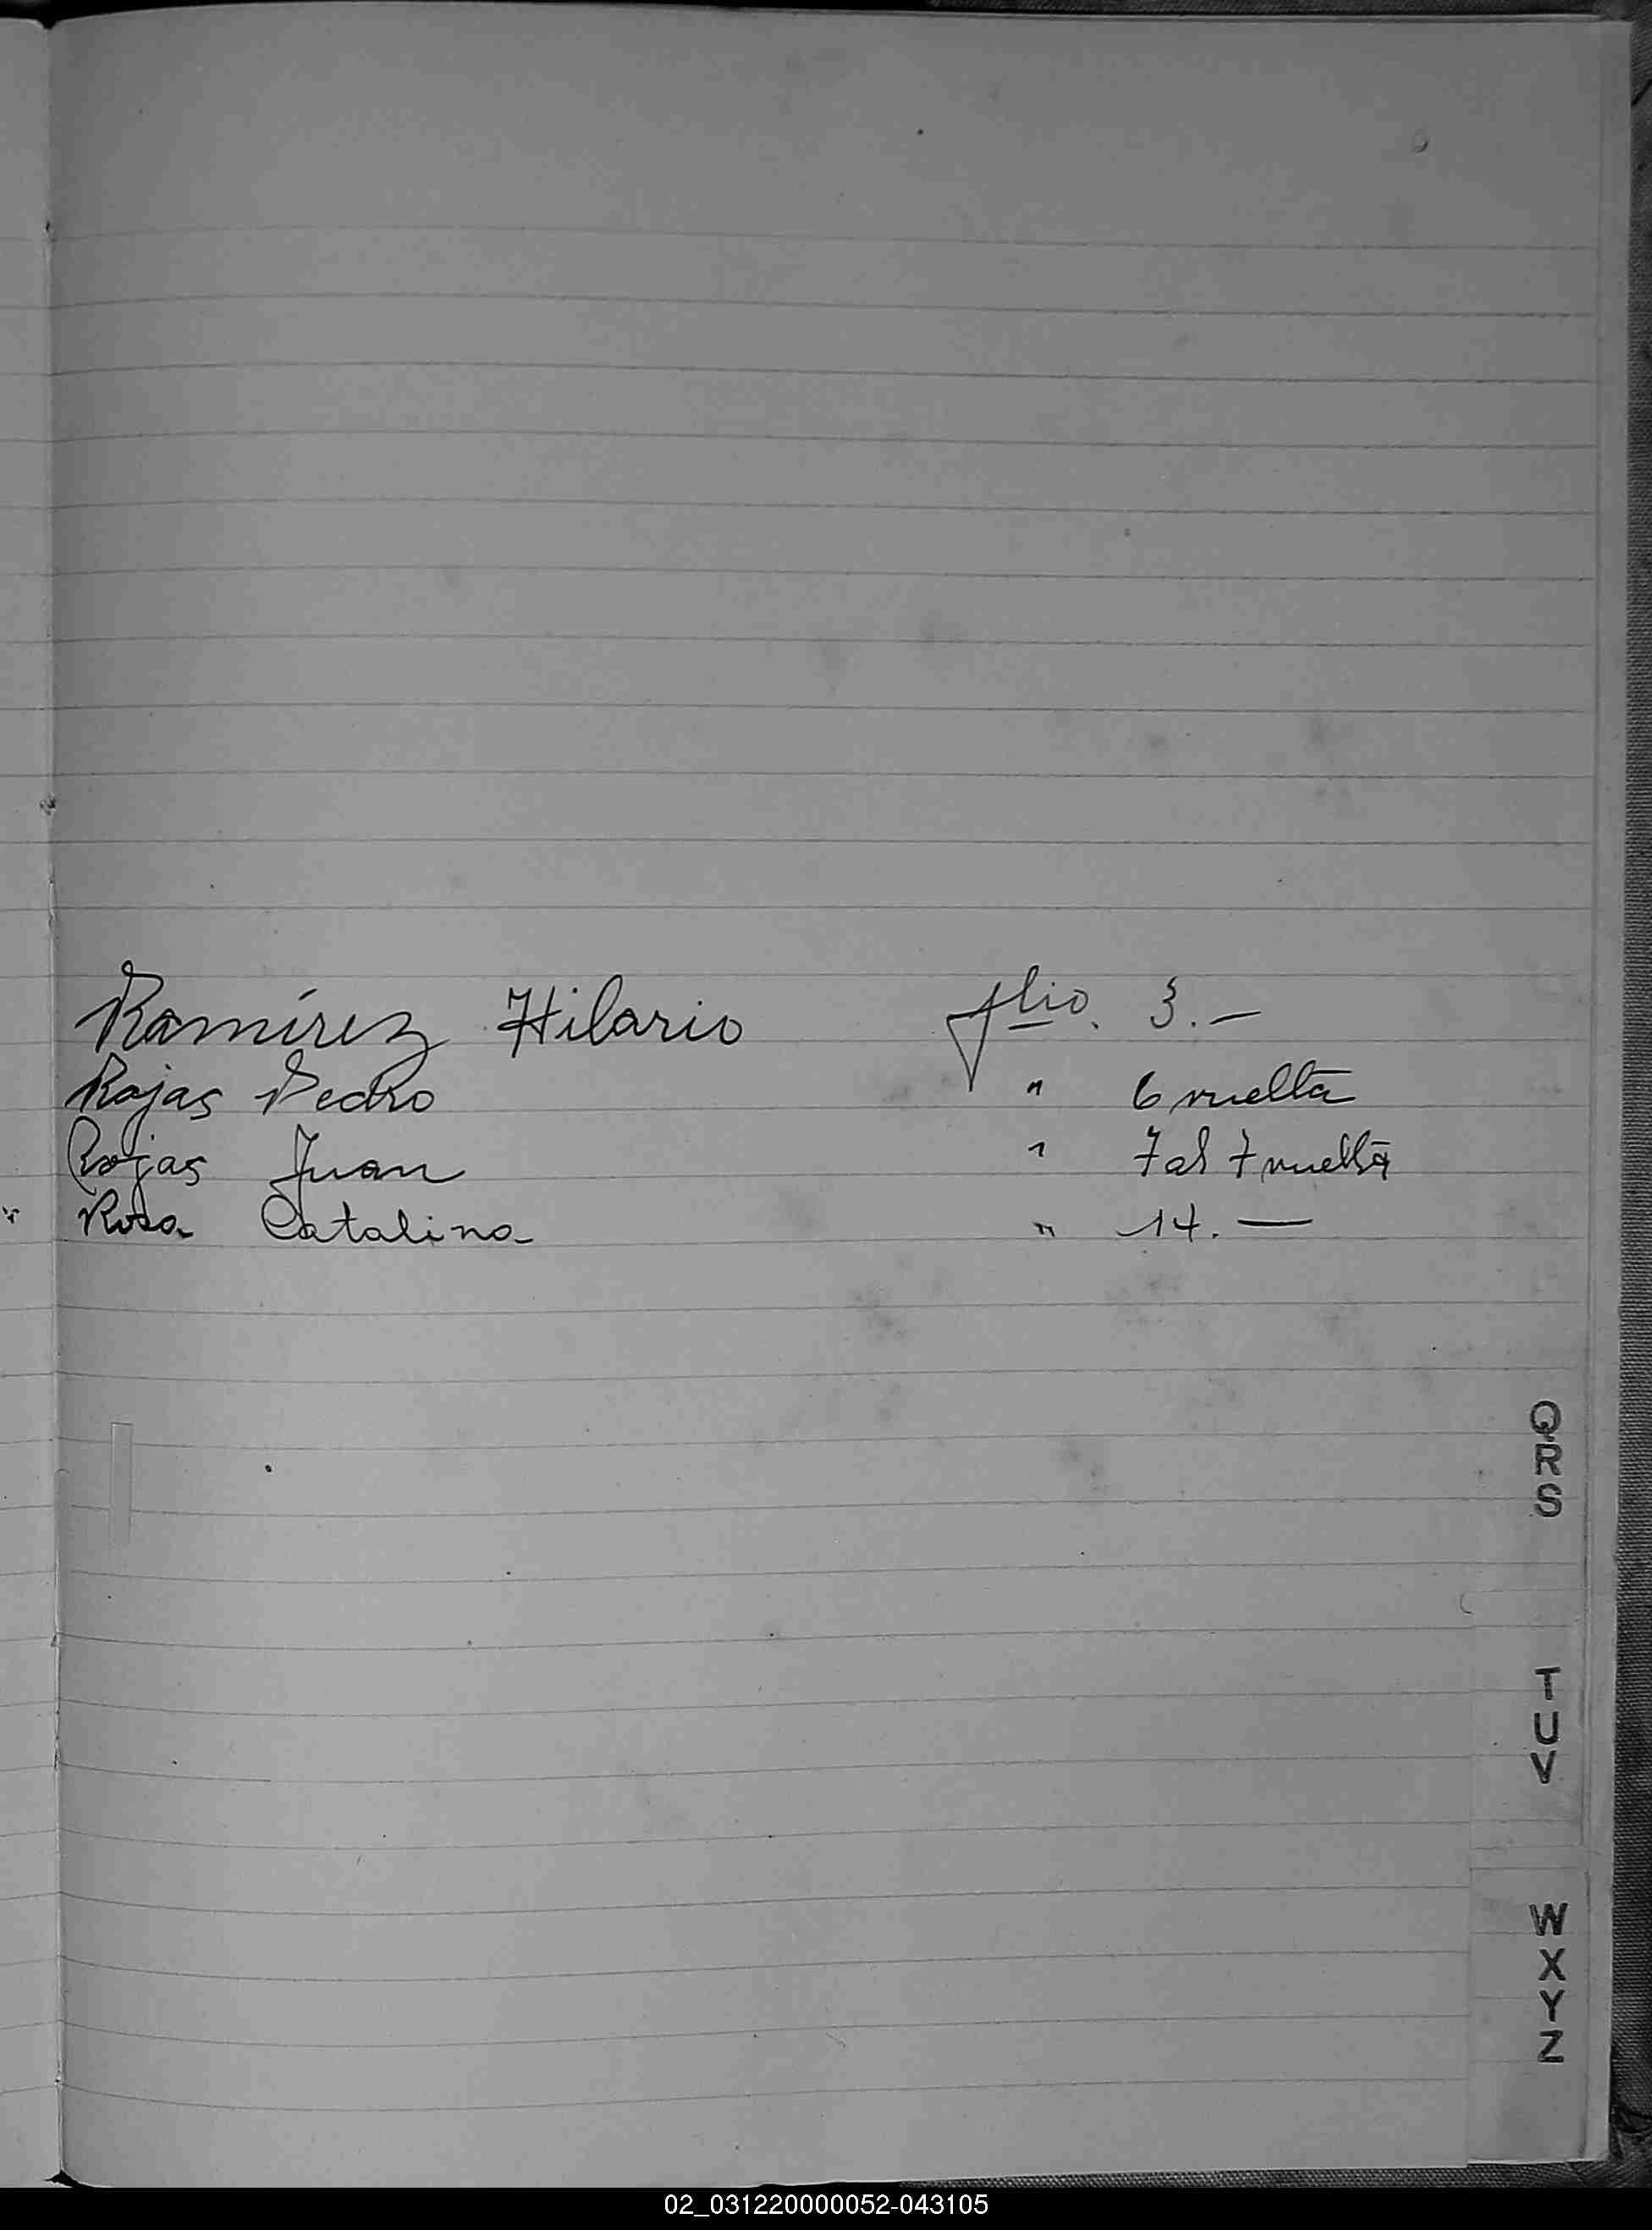 Ramírez Hilario flio. 3.—
Rojas Pedro " 6 vuelta
Rojas Juan " 7 al 7 vuelta
Rosa Catalina " 14.—
Q
R
S
T
U
V
W
X
Y
Z
02_031220000052-043105